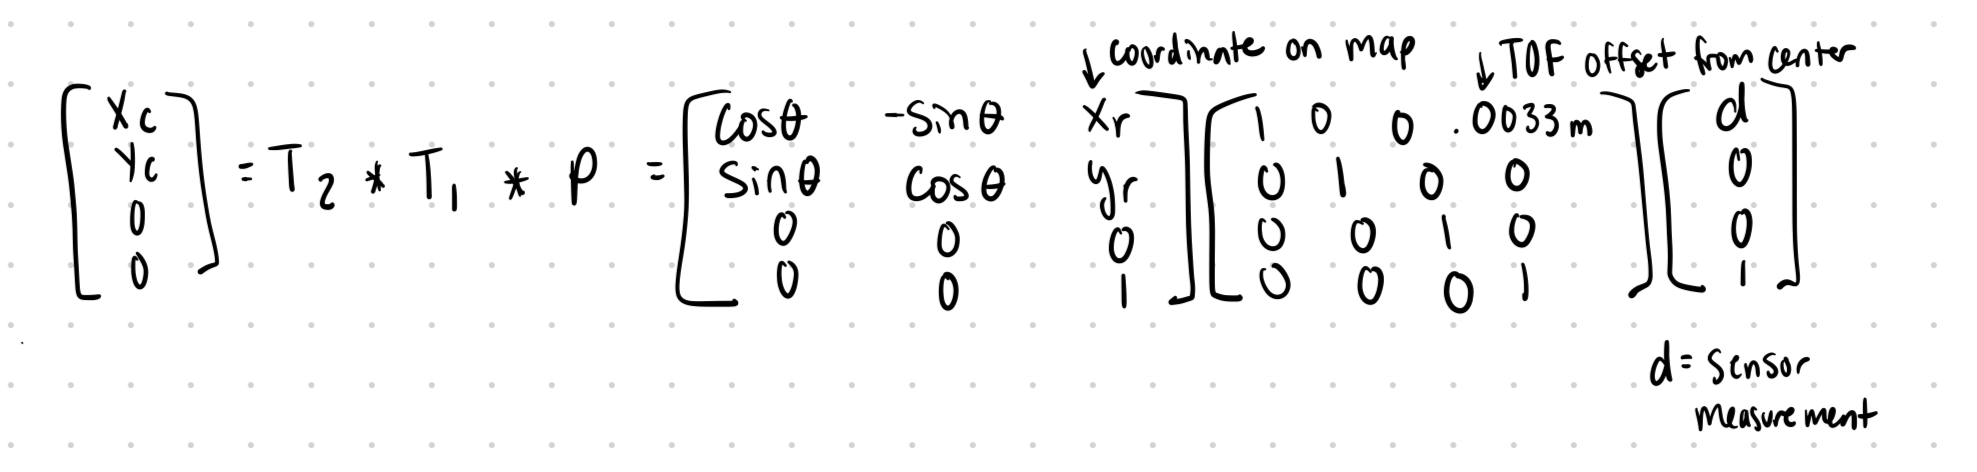 ↓ coordinate on map
↓ TOF offset from center
[Xc Yc 0 0] = T2 * T1 * P = [cosθ -sinθ Xr; sinθ cosθ yr; 0 0 0; 0 0 1] [1 0 0 .0033m; 0 1 0 0; 0 0 1 0; 0 0 0 1] [d 0 0 1]
d = sensor
measurement